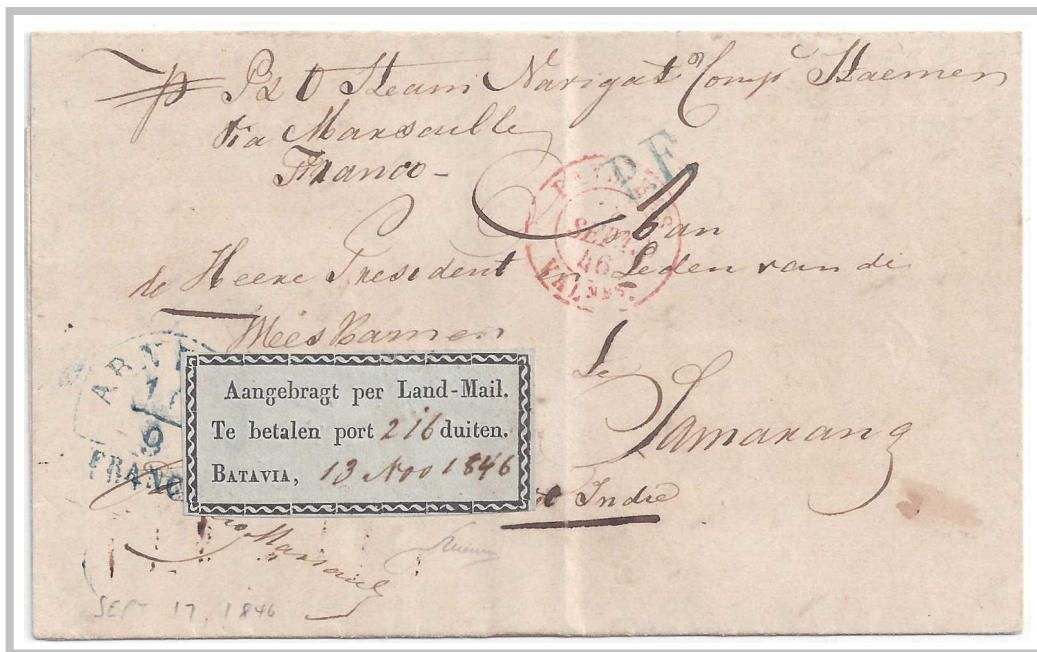 p P & O Steam Navigat Comp Staemen
via Marseille
Franco -
P.F.
PAID
SEPT
46
Aan
de Heere President Leden van de
Weeskamer
te
Samarang
Indie
ARN
9
FRANCO
Aangebragt per Land-Mail.
Te betalen port 216 duiten.
BATAVIA, 13 Nov 1846
SEPT 17, 1846